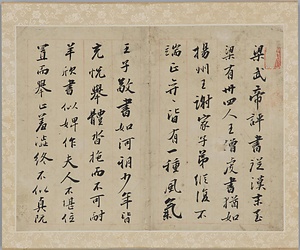 梁武帝評書從漢末至
梁有卅四人王僧虔書猶如
揚州王謝家子弟縱復不
端正奕〻皆有一種風氣
王子敬書如河朔少年皆
充悅舉體沓拖而不可耐
羊欣書似婢作夫人不堪位
置而舉止羞澁終不似真阮